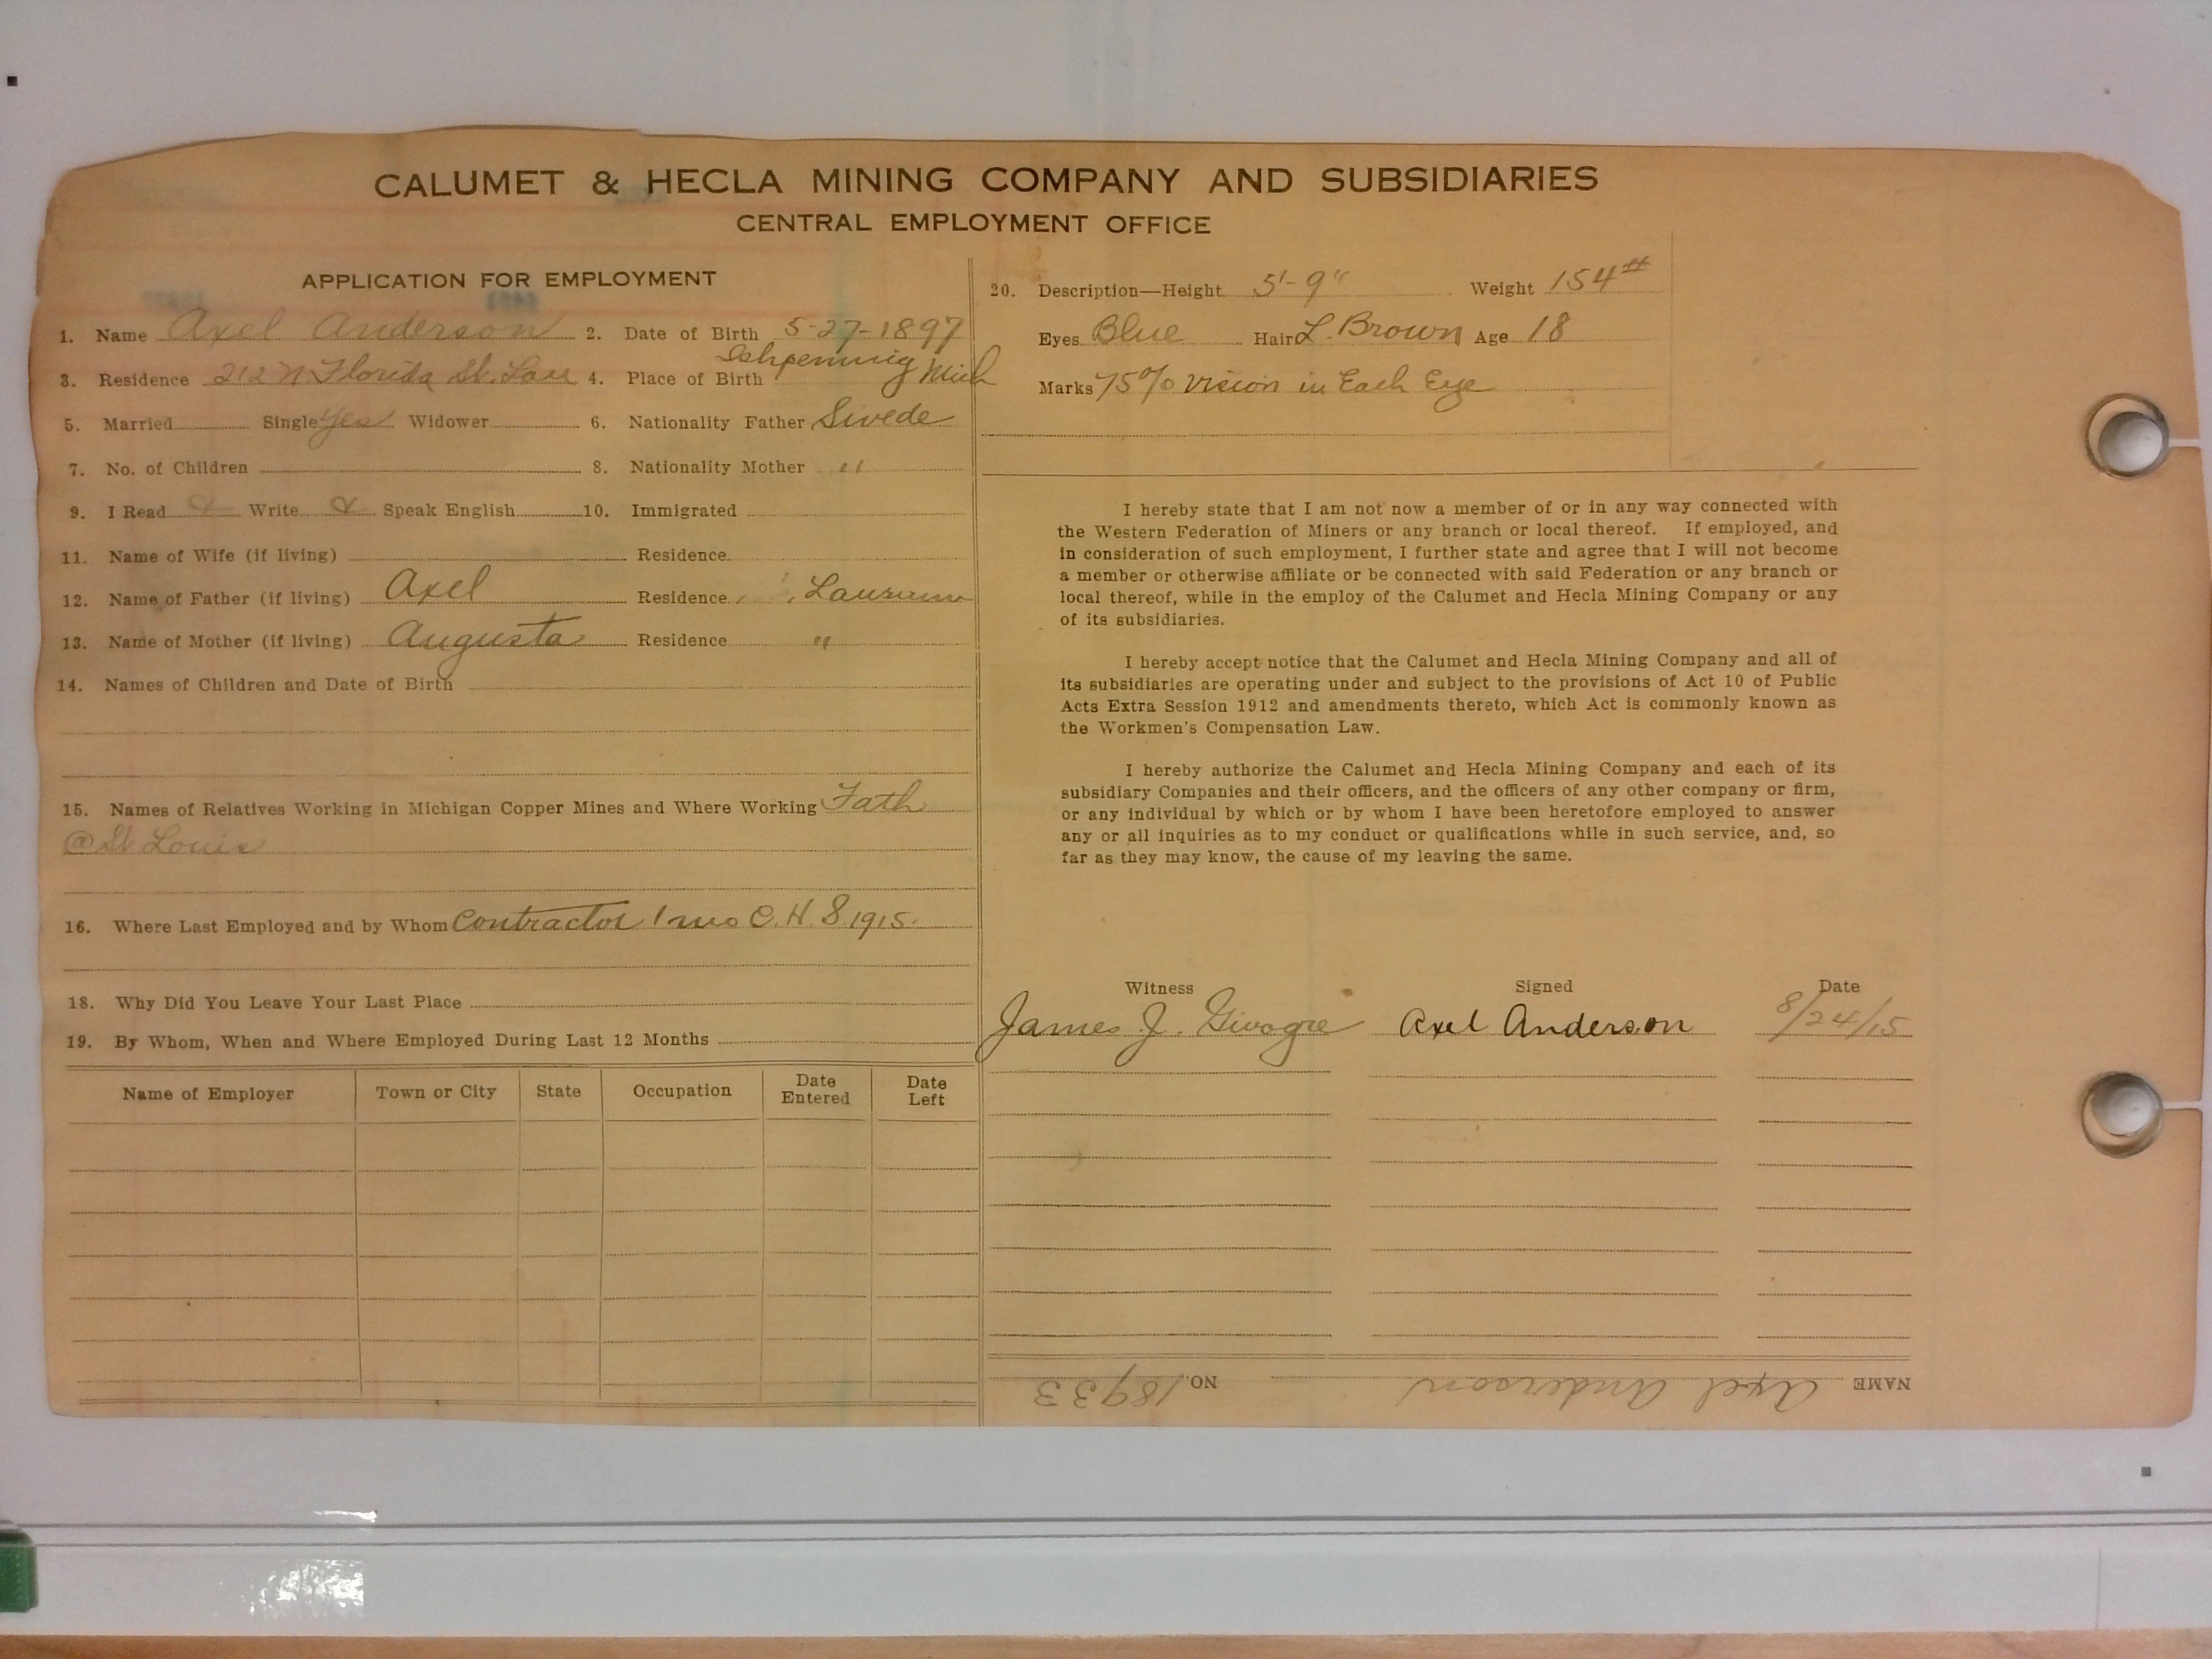 CALUMET & HECLA MINING COMPANY AND SUBSIDIARIES
CENTRAL EMPLOYMENT OFFICE
APPLICATION FOR EMPLOYMENT
1. Name Axel Anderson 2. Date of Birth 5-27-1897
3. Residence 212 N Florida St. Lau 4. Place of Birth Ishpeming Mich
5. Married Single Yes Widower 6. Nationality Father Swede
7. No. of Children 8. Nationality Mother "
9. I Read & Write & Speak English 10. Immigrated
11. Name of Wife (if living) Residence
12. Name of Father (if living) Axel Residence Laurium
13. Name of Mother (if living) Augusta Residence "
14. Names of Children and Date of Birth
15. Names of Relatives Working in Michigan Copper Mines and Where Working Fath
@ St Louis
16. Where Last Employed and by Whom Contractor 1 mo C. H. S 1915.
18. Why Did You Leave Your Last Place
19. By Whom, When and Where Employed During Last 12 Months
Name of Employer Town or City State Occupation Date Entered Date Left
20. Description—Height 5'-9" Weight 154#
Eyes Blue Hair L. Brown Age 18
Marks 75% vision in Each Eye
I hereby state that I am not now a member of or in any way connected with
the Western Federation of Miners or any branch or local thereof. If employed, and
in consideration of such employment, I further state and agree that I will not become
a member or otherwise affiliate or be connected with said Federation or any branch or
local thereof, while in the employ of the Calumet and Hecla Mining Company or any
of its subsidiaries.
I hereby accept notice that the Calumet and Hecla Mining Company and all of
its subsidiaries are operating under and subject to the provisions of Act 10 of Public
Acts Extra Session 1912 and amendments thereto, which Act is commonly known as
the Workmen's Compensation Law.
I hereby authorize the Calumet and Hecla Mining Company and each of its
subsidiary Companies and their officers, and the officers of any other company or firm,
or any individual by which or by whom I have been heretofore employed to answer
any or all inquiries as to my conduct or qualifications while in such service, and, so
far as they may know, the cause of my leaving the same.
Witness Signed Date
James J. Axel Anderson 8/24/15
NAME Axel Anderson NO. 18933